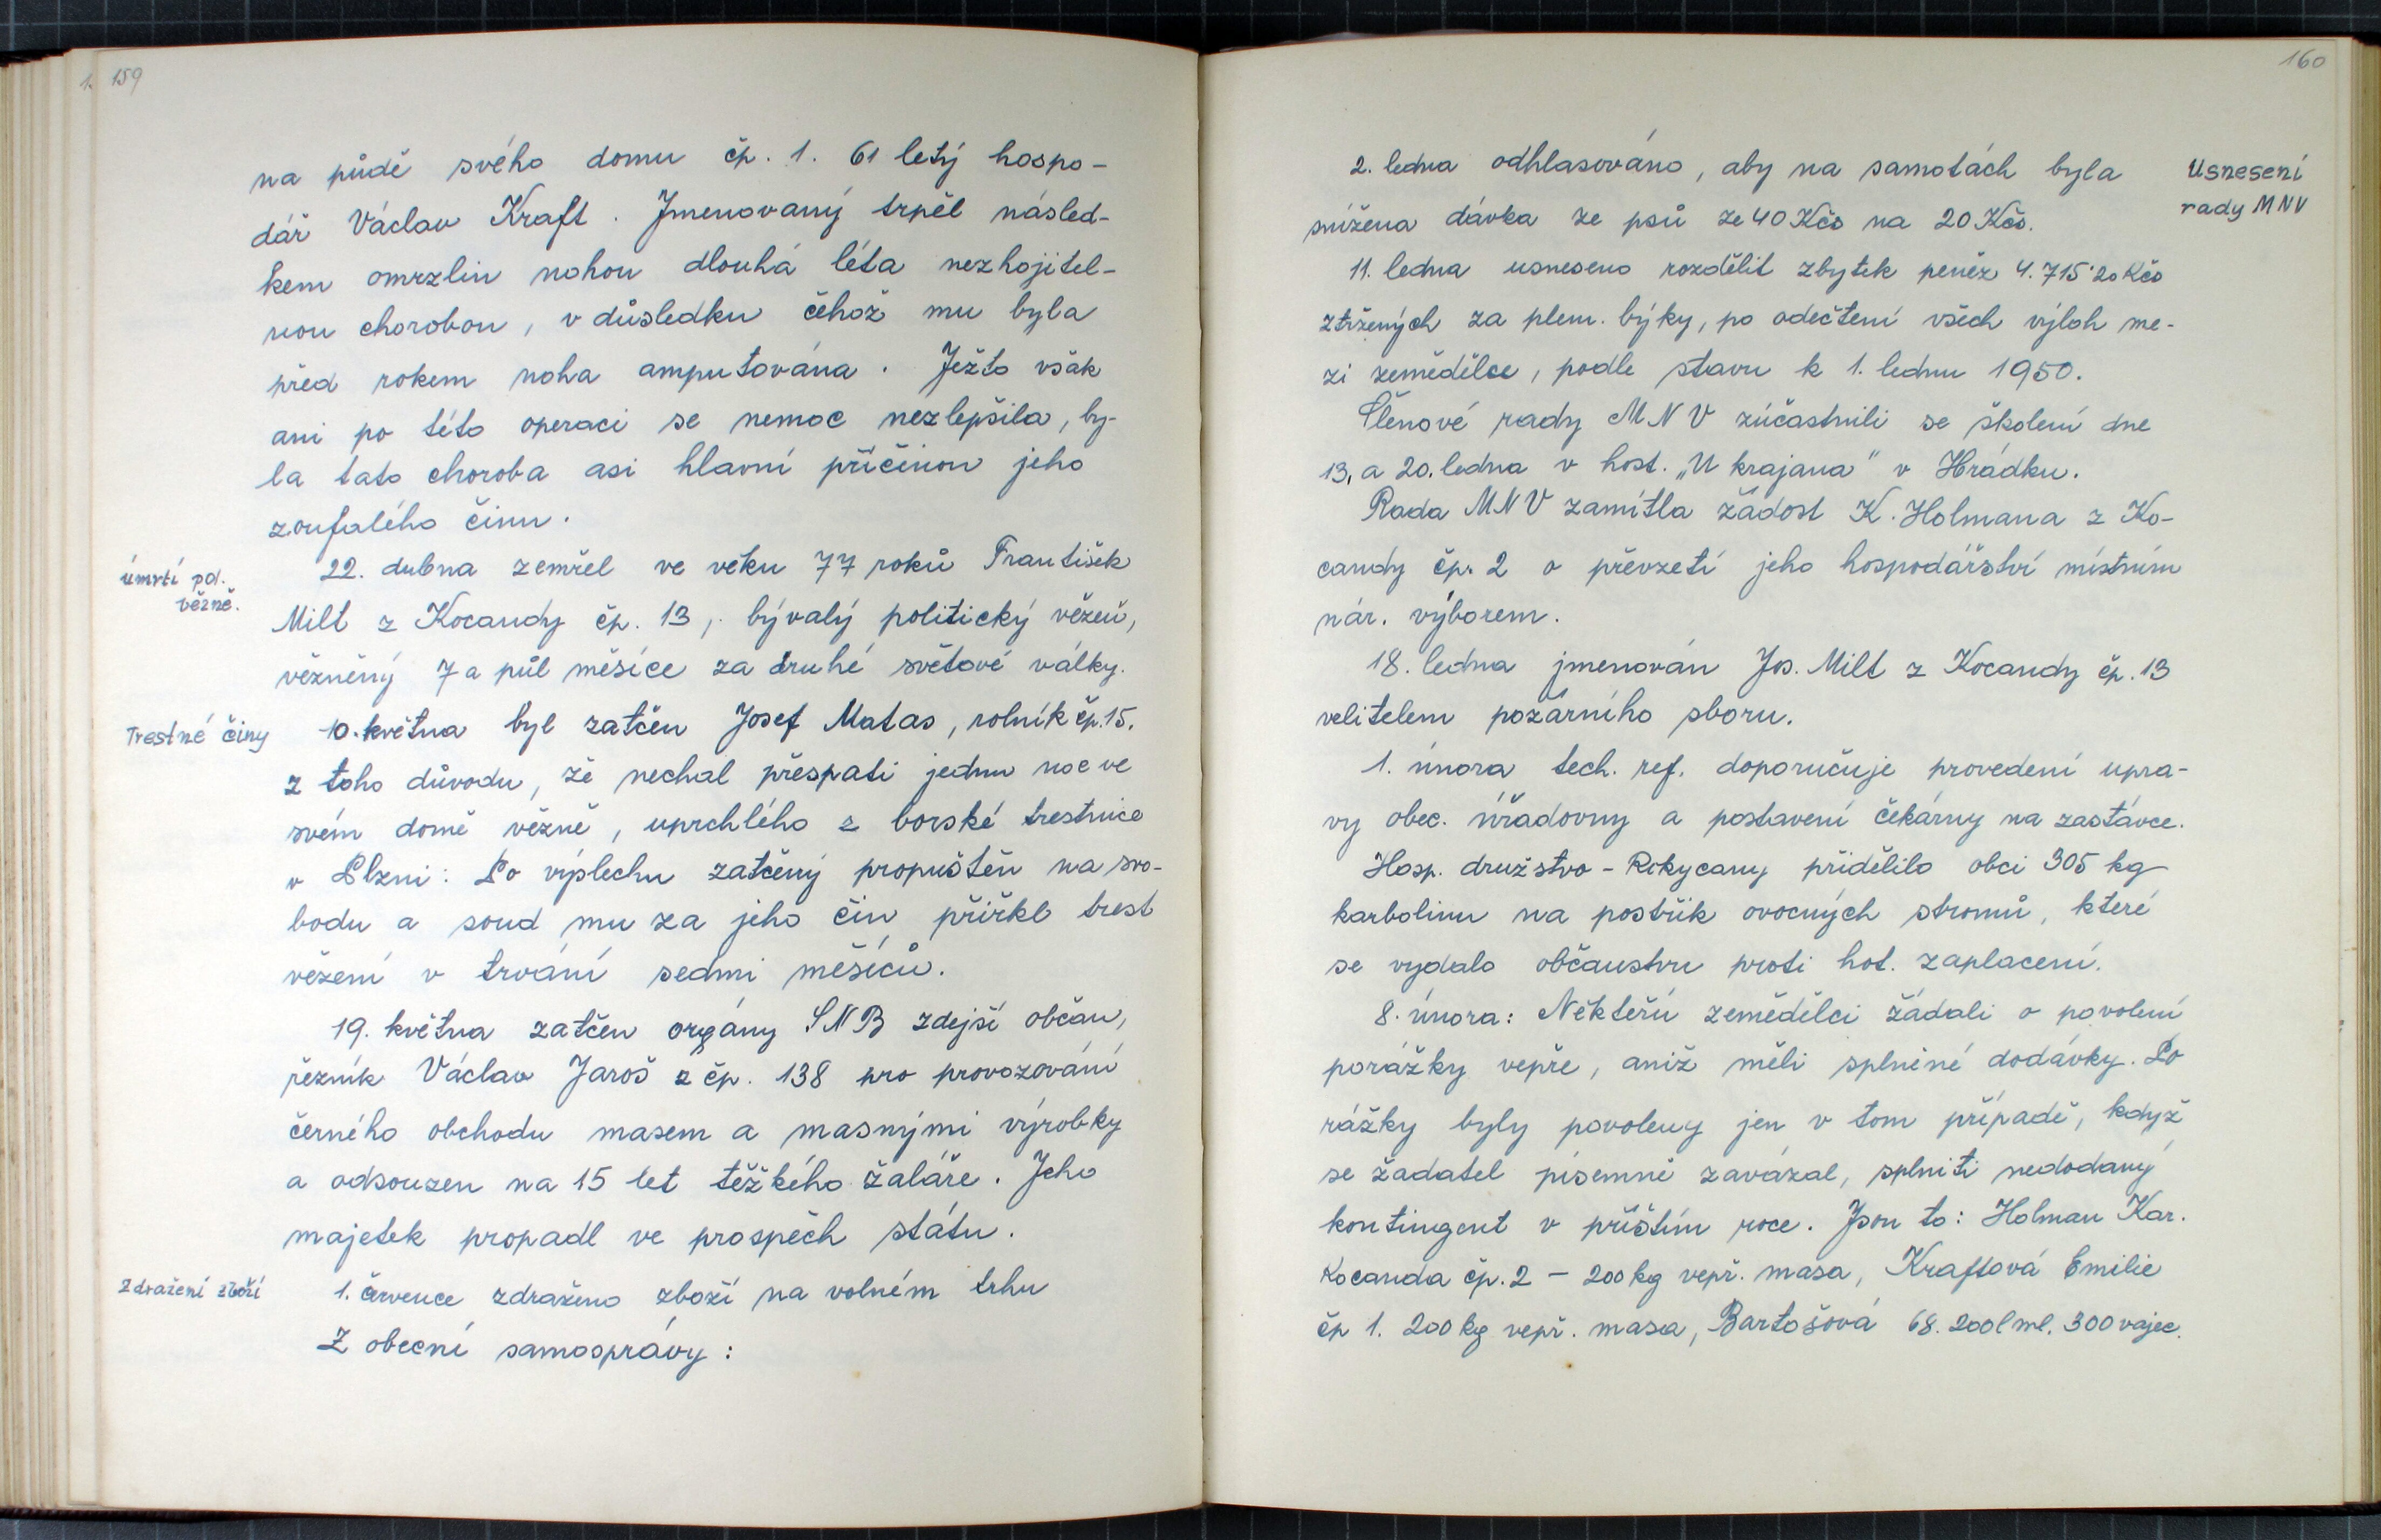 159
na půdě svého domu čp. 1. 61 letý hospo-
dář Václav Kraft. Jmenovaný trpěl násled-
kem omrzlin nohou dlouhá léta nezhojitel-
nou chorobou, v důsledku čehož mu byla
před rokem noha amputována. Ježto však
ani po této operaci se nemoc nezlepšila, by-
la tato choroba asi hlavní příčinou jeho
zoufalého činu.
úmrtí pol.
vězně.
22. dubna zemřel ve věku 77 roků František
Milt z Kocandy čp. 13, bývalý politický vězeň,
vězněný 7 a půl měsíce za druhé světové války.
Trestné činy
10. května byl zatčen Josef Matas, rolník čp. 15.
z toho důvodu, že nechal přespati jednu noc ve
svém domě vězně, uprchlého z borské trestnice
v Plzni. Po výslechu zatčený propuštěn na svo-
bodu a soud mu za jeho čin přiřkl trest
vězení v trvání sedmi měsíců.
19. května zatčen orgány SNB zdejší občan,
řezník Václav Jaroš z čp. 138 pro provozování
černého obchodu masem a masnými výrobky
a odsouzen na 15 let těžkého žaláře. Jeho
majetek propadl ve prospěch státu.
Zdražení zboží
1. července zdraženo zboží na volném trhu
Z obecní samosprávy:
160
Usnesení
rady MNV
2. ledna odhlasováno, aby na samotách byla
snížena dávka ze psů ze 40 Kčs na 20 Kčs.
11. ledna usneseno rozdělit zbytek peněz 4.715·20 Kčs
ztržených za plem. býky, po odečtení všech výloh me-
zi zemědělce, podle stavu k 1. lednu 1950.
Členové rady MNV zúčastnili se školení dne
13. a 20. ledna v host. „U krajana" v Hrádku.
Rada MNV zamítla žádost K. Holmana z Ko-
candy čp. 2 o převzetí jeho hospodářství místním
nár. výborem.
18. ledna jmenován Jos. Milt z Kocandy čp. 13
velitelem požárního sboru.
1. února tech. ref. doporučuje provedení úpra-
vy obec. úřadovny a postavení čekárny na zastávce.
Hosp. družstvo - Rokycany přidělilo obci 305 kg
karbolinu na postřik ovocných stromů, které
se vydalo občanstvu proti hot. zaplacení.
8. února: Někteří zemědělci žádali o povolení
porážky vepře, aniž měli splněné dodávky. Po
rážky byly povoleny jen v tom případě, když
se žadatel písemně zavázal, splniti nedodaný
kontingent v příštím roce. Jsou to: Holman Kar.
Kocanda čp. 2 - 200 kg vepř. masa, Kraftová Emilie
čp 1. 200 kg vepř. masa, Bartošová 68. 200 l ml. 300 vajec.